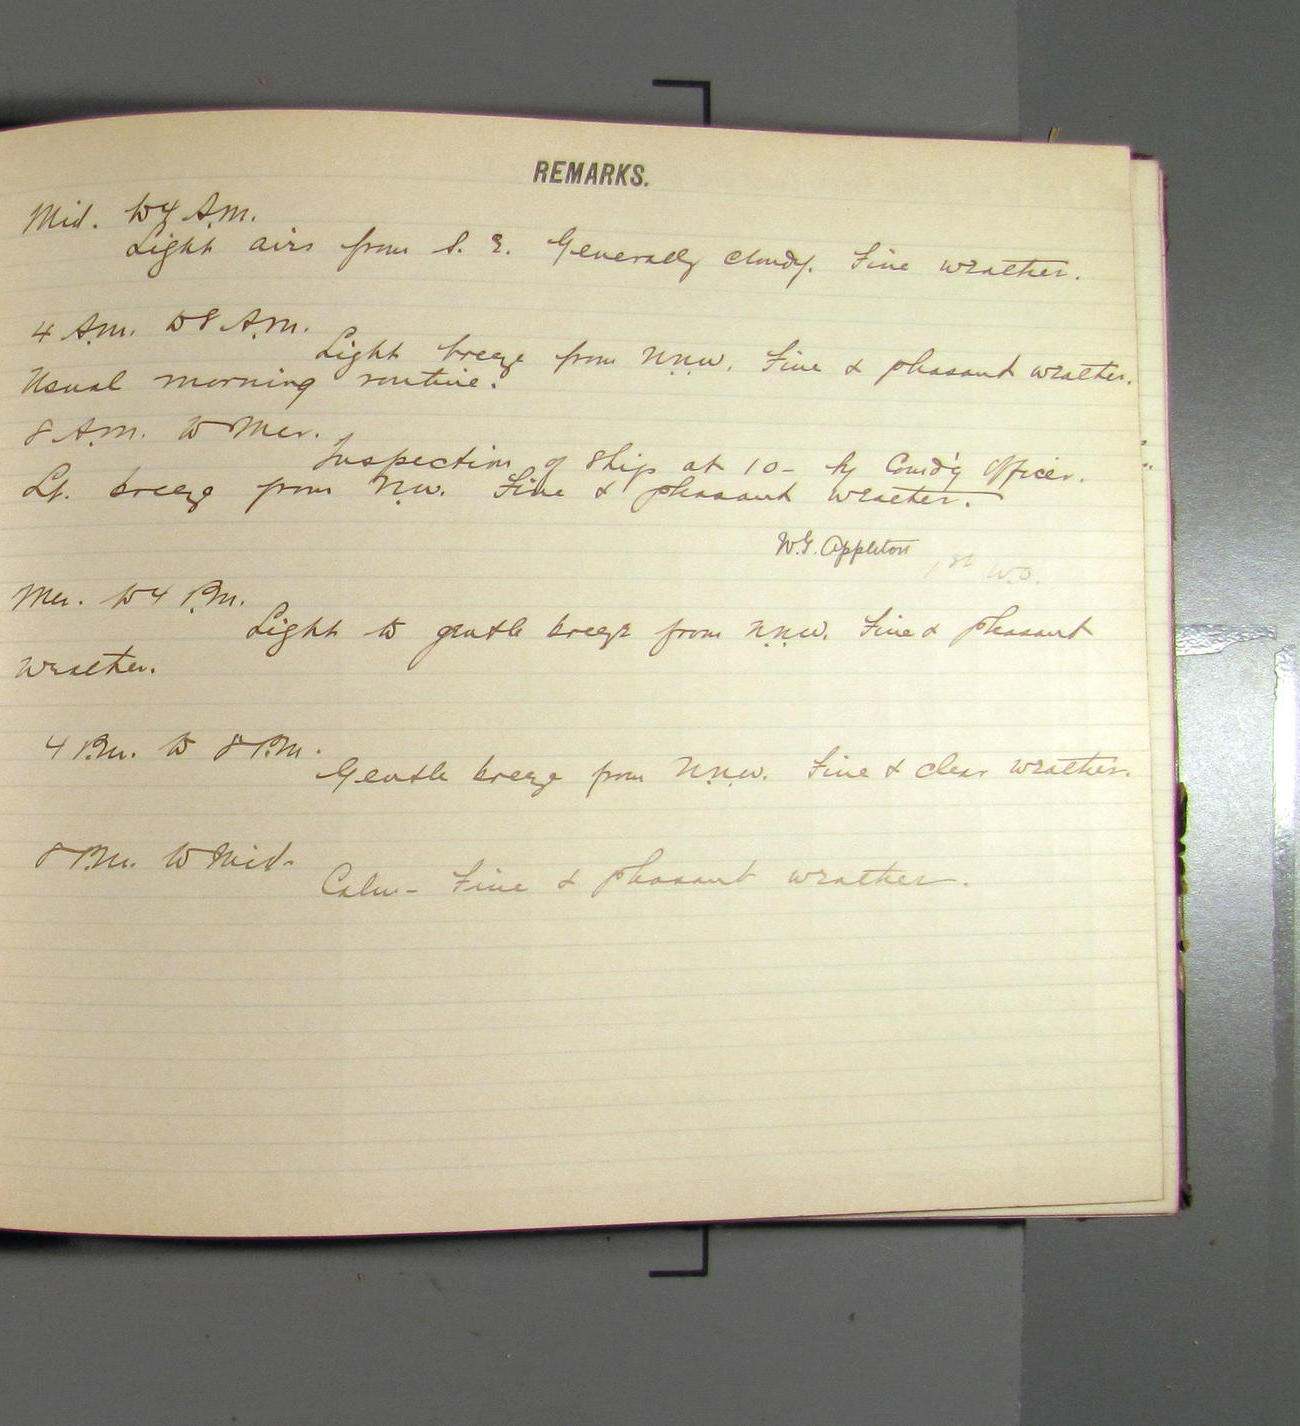 REMARKS.
Mid. to 4 A.m.
Light airs from S. E. Generally cloudy. Fine weather.
4 A.m. to 8 A.m.
Light breeze from N.N.W. Fine & pleasant weather.
Usual morning routine.
8 A.m. to Mer.
Inspection of Ship at 10- by Comd'g Officer.
Lt. breeze from N.W. Fine & pleasant weather.
W.G. Appleton
1st W.O.
Mer. to 4 P.m.
Light to gentle breeze from N.N.W. Fine & pleasant
weather.
4 P.m. to 8 P.m.
Gentle breeze from N.N.W. Fine & clear weather.
8 P.m. to Mid.
Calm- Fine & pleasant weather.